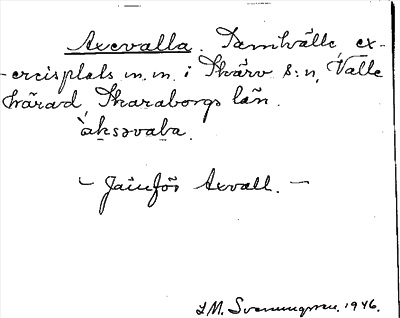 Axevalla. Samhälle, ex-
-ercisplats m.m. i Skärv s:n, Valle
härad, Skaraborgs län.
`aksəvaba.
- Jämför Axvall. -
I.M. Svenningsson. 1946.